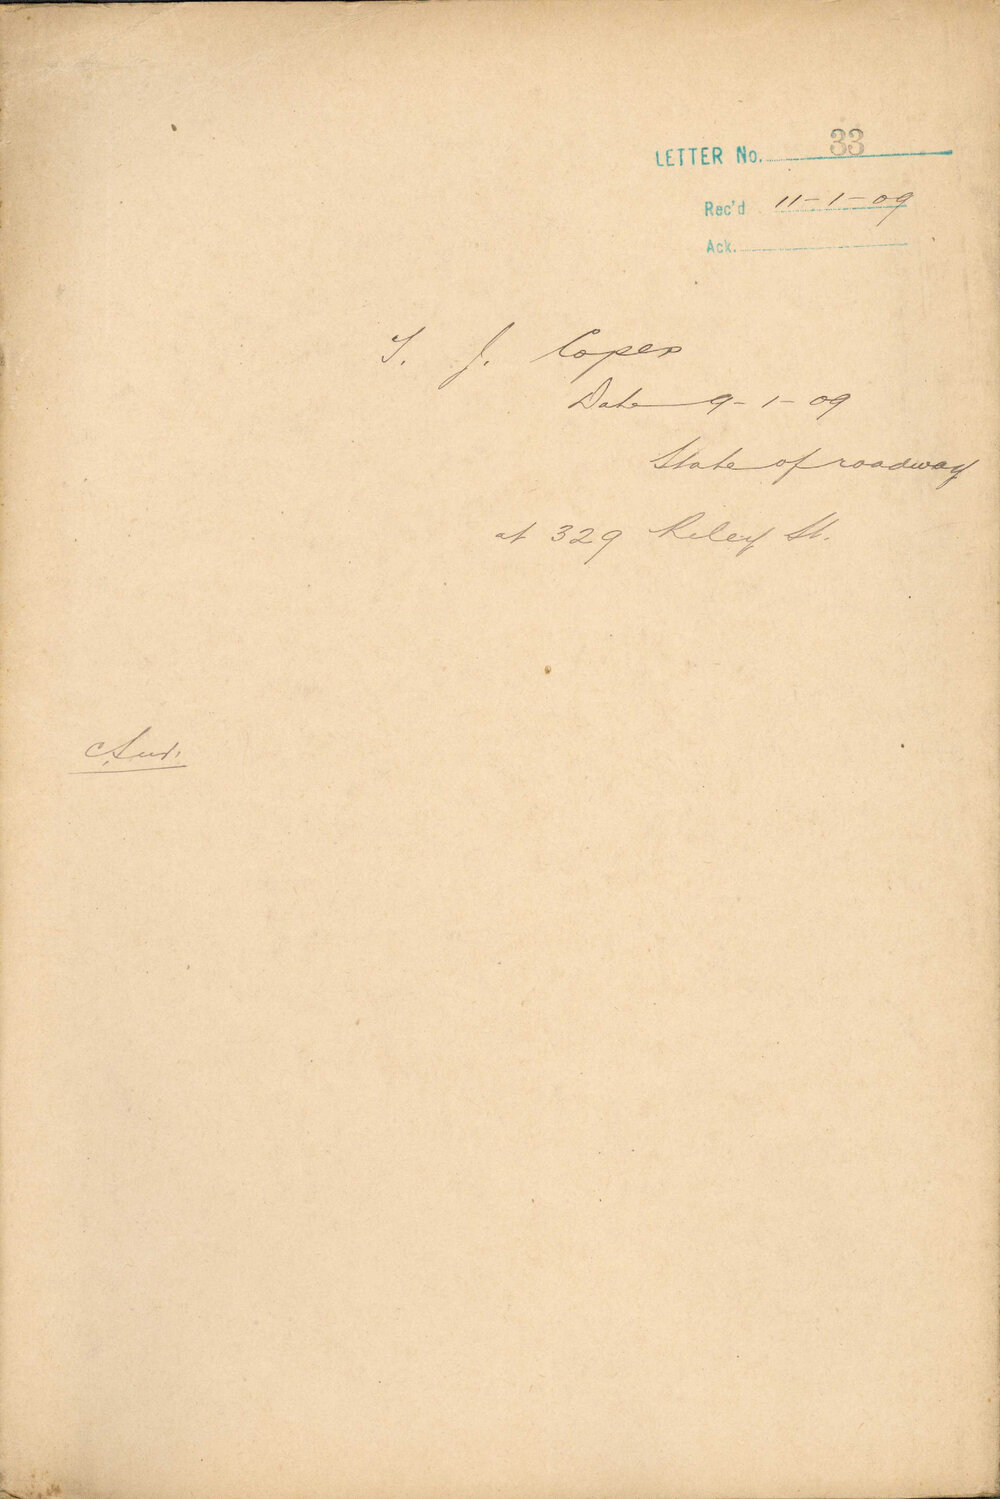 LETTER No. 33
Rec'd 11-1-09
Ack.
T. J. Coper
Date 9-1-09
State of roadway
at 329 Riley St.